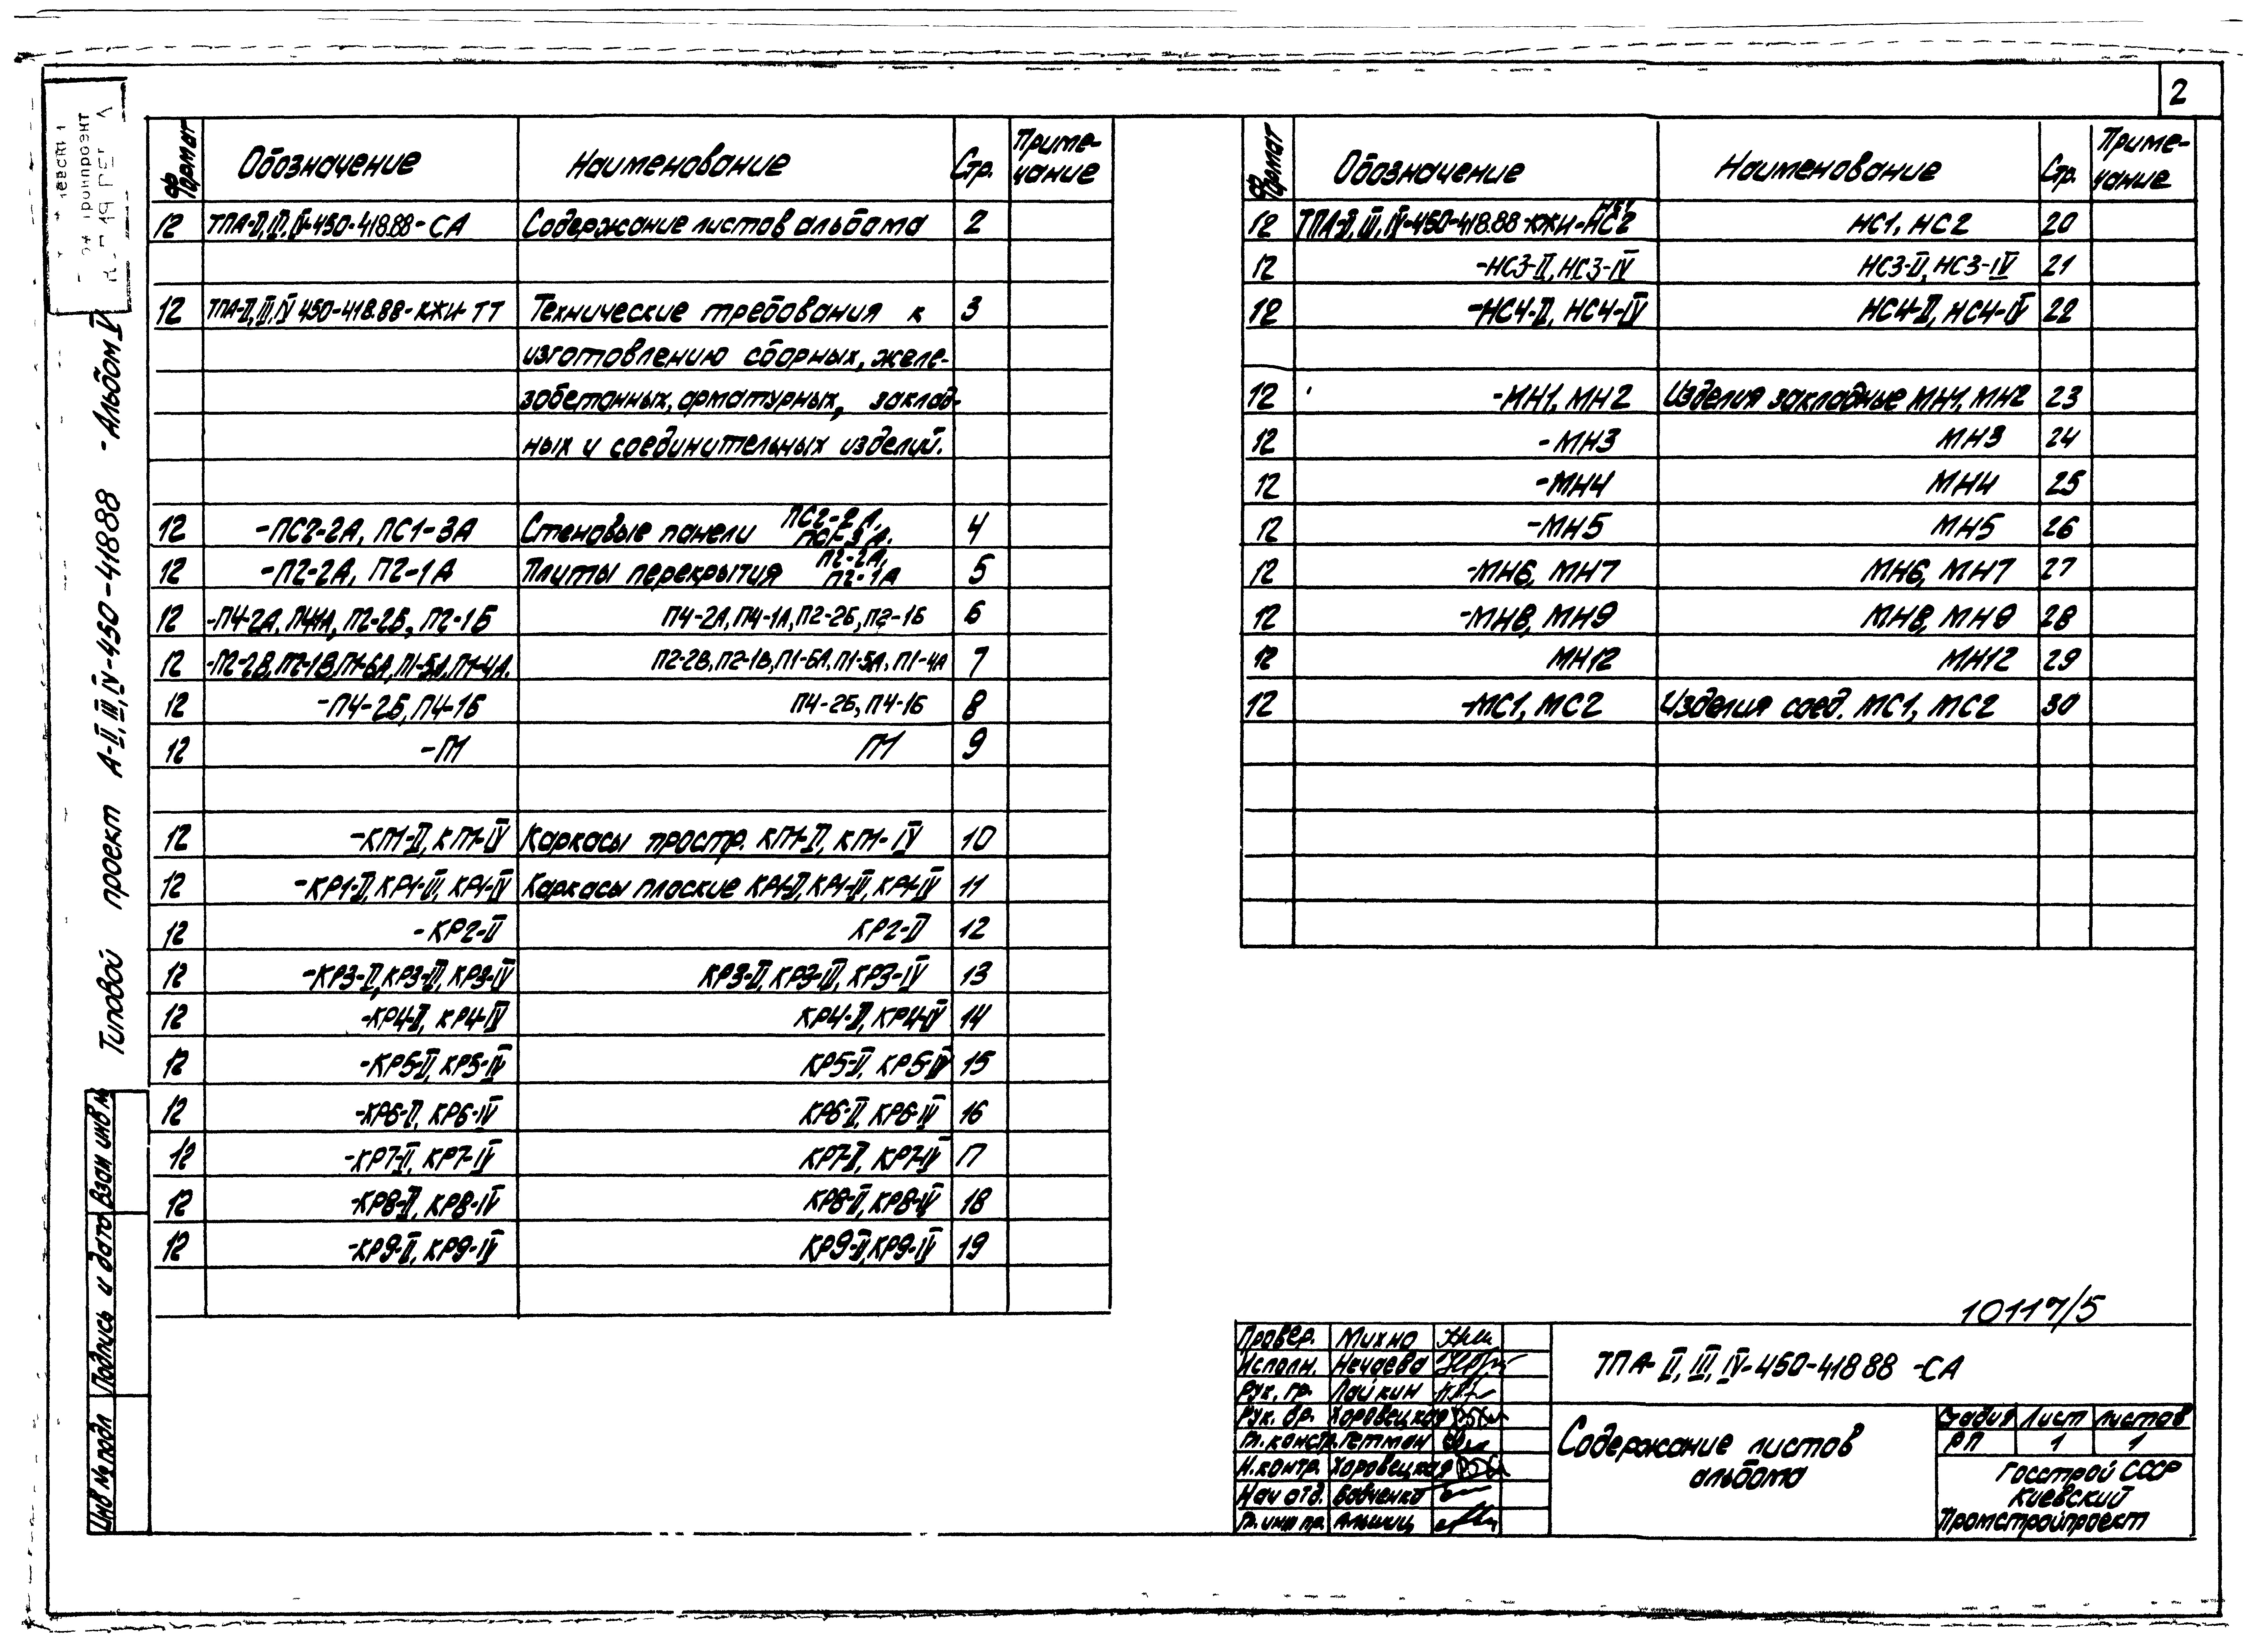 2
Типовой проект А-II, III, IV-450-418.88 -Альбом V
Формат Обозначение Наименование Стр. Примечание
12 ТПА-II, III, IV-450-418.88-СА Содержание листов альбома 2
12 ТПА-II, III, IV 450-418.88-КЖИ-ТТ Технические требования к 3
изготовлению сборных, желе-
зобетонных, арматурных, заклад-
ных и соединительных изделий.
12 -ПС2-2А, ПС1-3А Стеновые панели ПС2-2А, ПС1-3А. 4
12 -П2-2А, П2-1А Плиты перекрытия П2-2А, П2-1А 5
12 -П4-2А, П4-1А, П2-2Б, П2-1Б П4-2А, П4-1А, П2-2Б, П2-1Б 6
12 -П2-2В, П2-1В, П1-6А, П1-5А, П1-4А. П2-2В, П2-1В, П1-6А, П1-5А, П1-4А 7
12 -П4-2Б, П4-1Б П4-2Б, П4-1Б 8
12 -П1 П1 9
12 -КП1-II, КП1-IV Каркасы простр. КП1-II, КП1-IV 10
12 -КР1-II, КР1-III, КР1-IV Каркасы плоские КР1-II, КР1-III, КР1-IV 11
12 -КР2-II КР2-II 12
12 -КР3-II, КР3-III, КР3-IV КР3-II, КР3-III, КР3-IV 13
12 -КР4-II, КР4-IV КР4-II, КР4-IV 14
12 -КР5-II, КР5-IV КР5-II, КР5-IV 15
12 -КР6-II, КР6-IV КР6-II, КР6-IV 16
12 -КР7-II, КР7-IV КР7-II, КР7-IV 17
12 -КР8-II, КР8-IV КР8-II, КР8-IV 18
12 -КР9-II, КР9-IV КР9-II, КР9-IV 19
Формат Обозначение Наименование Стр. Примечание
12 ТПА-II, III, IV-450-418.88-КЖИ-НС1 НС2 НС1, НС2 20
12 -НС3-II, НС3-IV НС3-II, НС3-IV 21
12 -НС4-II, НС4-IV НС4-II, НС4-IV 22
12 -МН1, МН2 Изделия закладные МН1, МН2 23
12 -МН3 МН3 24
12 -МН4 МН4 25
12 -МН5 МН5 26
12 -МН6, МН7 МН6, МН7 27
12 -МН8, МН9 МН8, МН9 28
12 МН12 МН12 29
12 -МС1, МС2 Изделия соед. МС1, МС2 30
Инв № подл Подпись и дата Взам инв №
10117/5
Провер. Михно
Исполн. Нечаева
Рук. гр. Лайкин
Рук. бр. Хоровецкая
Гл. констр. Гетман
Н.контр. Хоровецкая
Нач отд. Бавченко
Гл. инж пр. Альшиц
ТПА- II, III, IV-450-418 88 -СА
Содержание листов
альбома
Стадия Лист Листов
РП 1 1
Госстрой СССР
Киевский
Промстройпроект